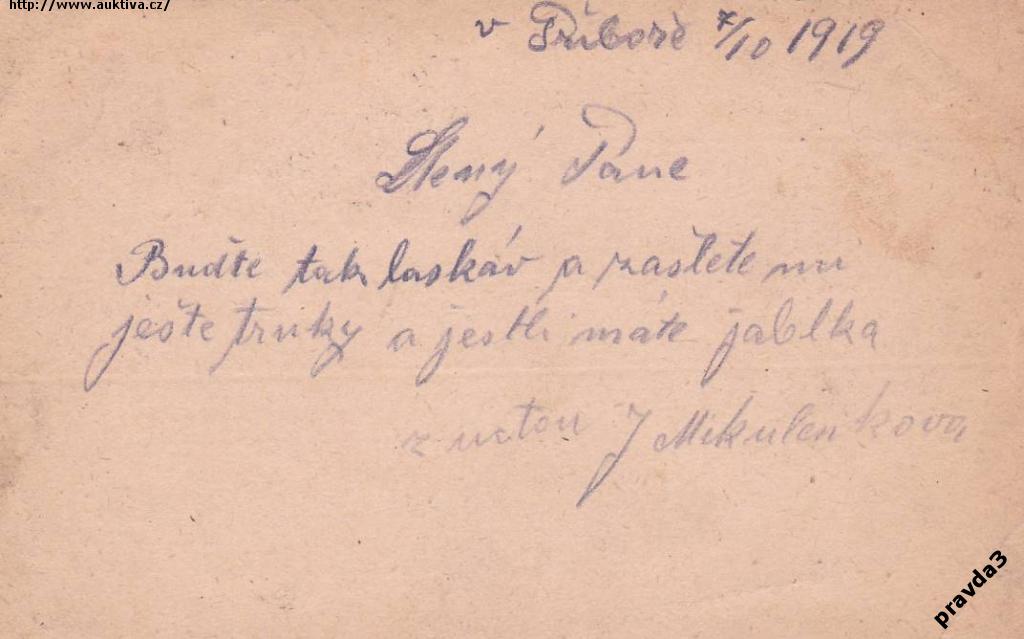 http://www.auktiva.cz/
v Příboře 7/10 1919
Slený Pane
Buďte tak laskáv a zašlete mi
ješte truky a jestli máte jablka
z uctou J Mikulenkova
pravda3